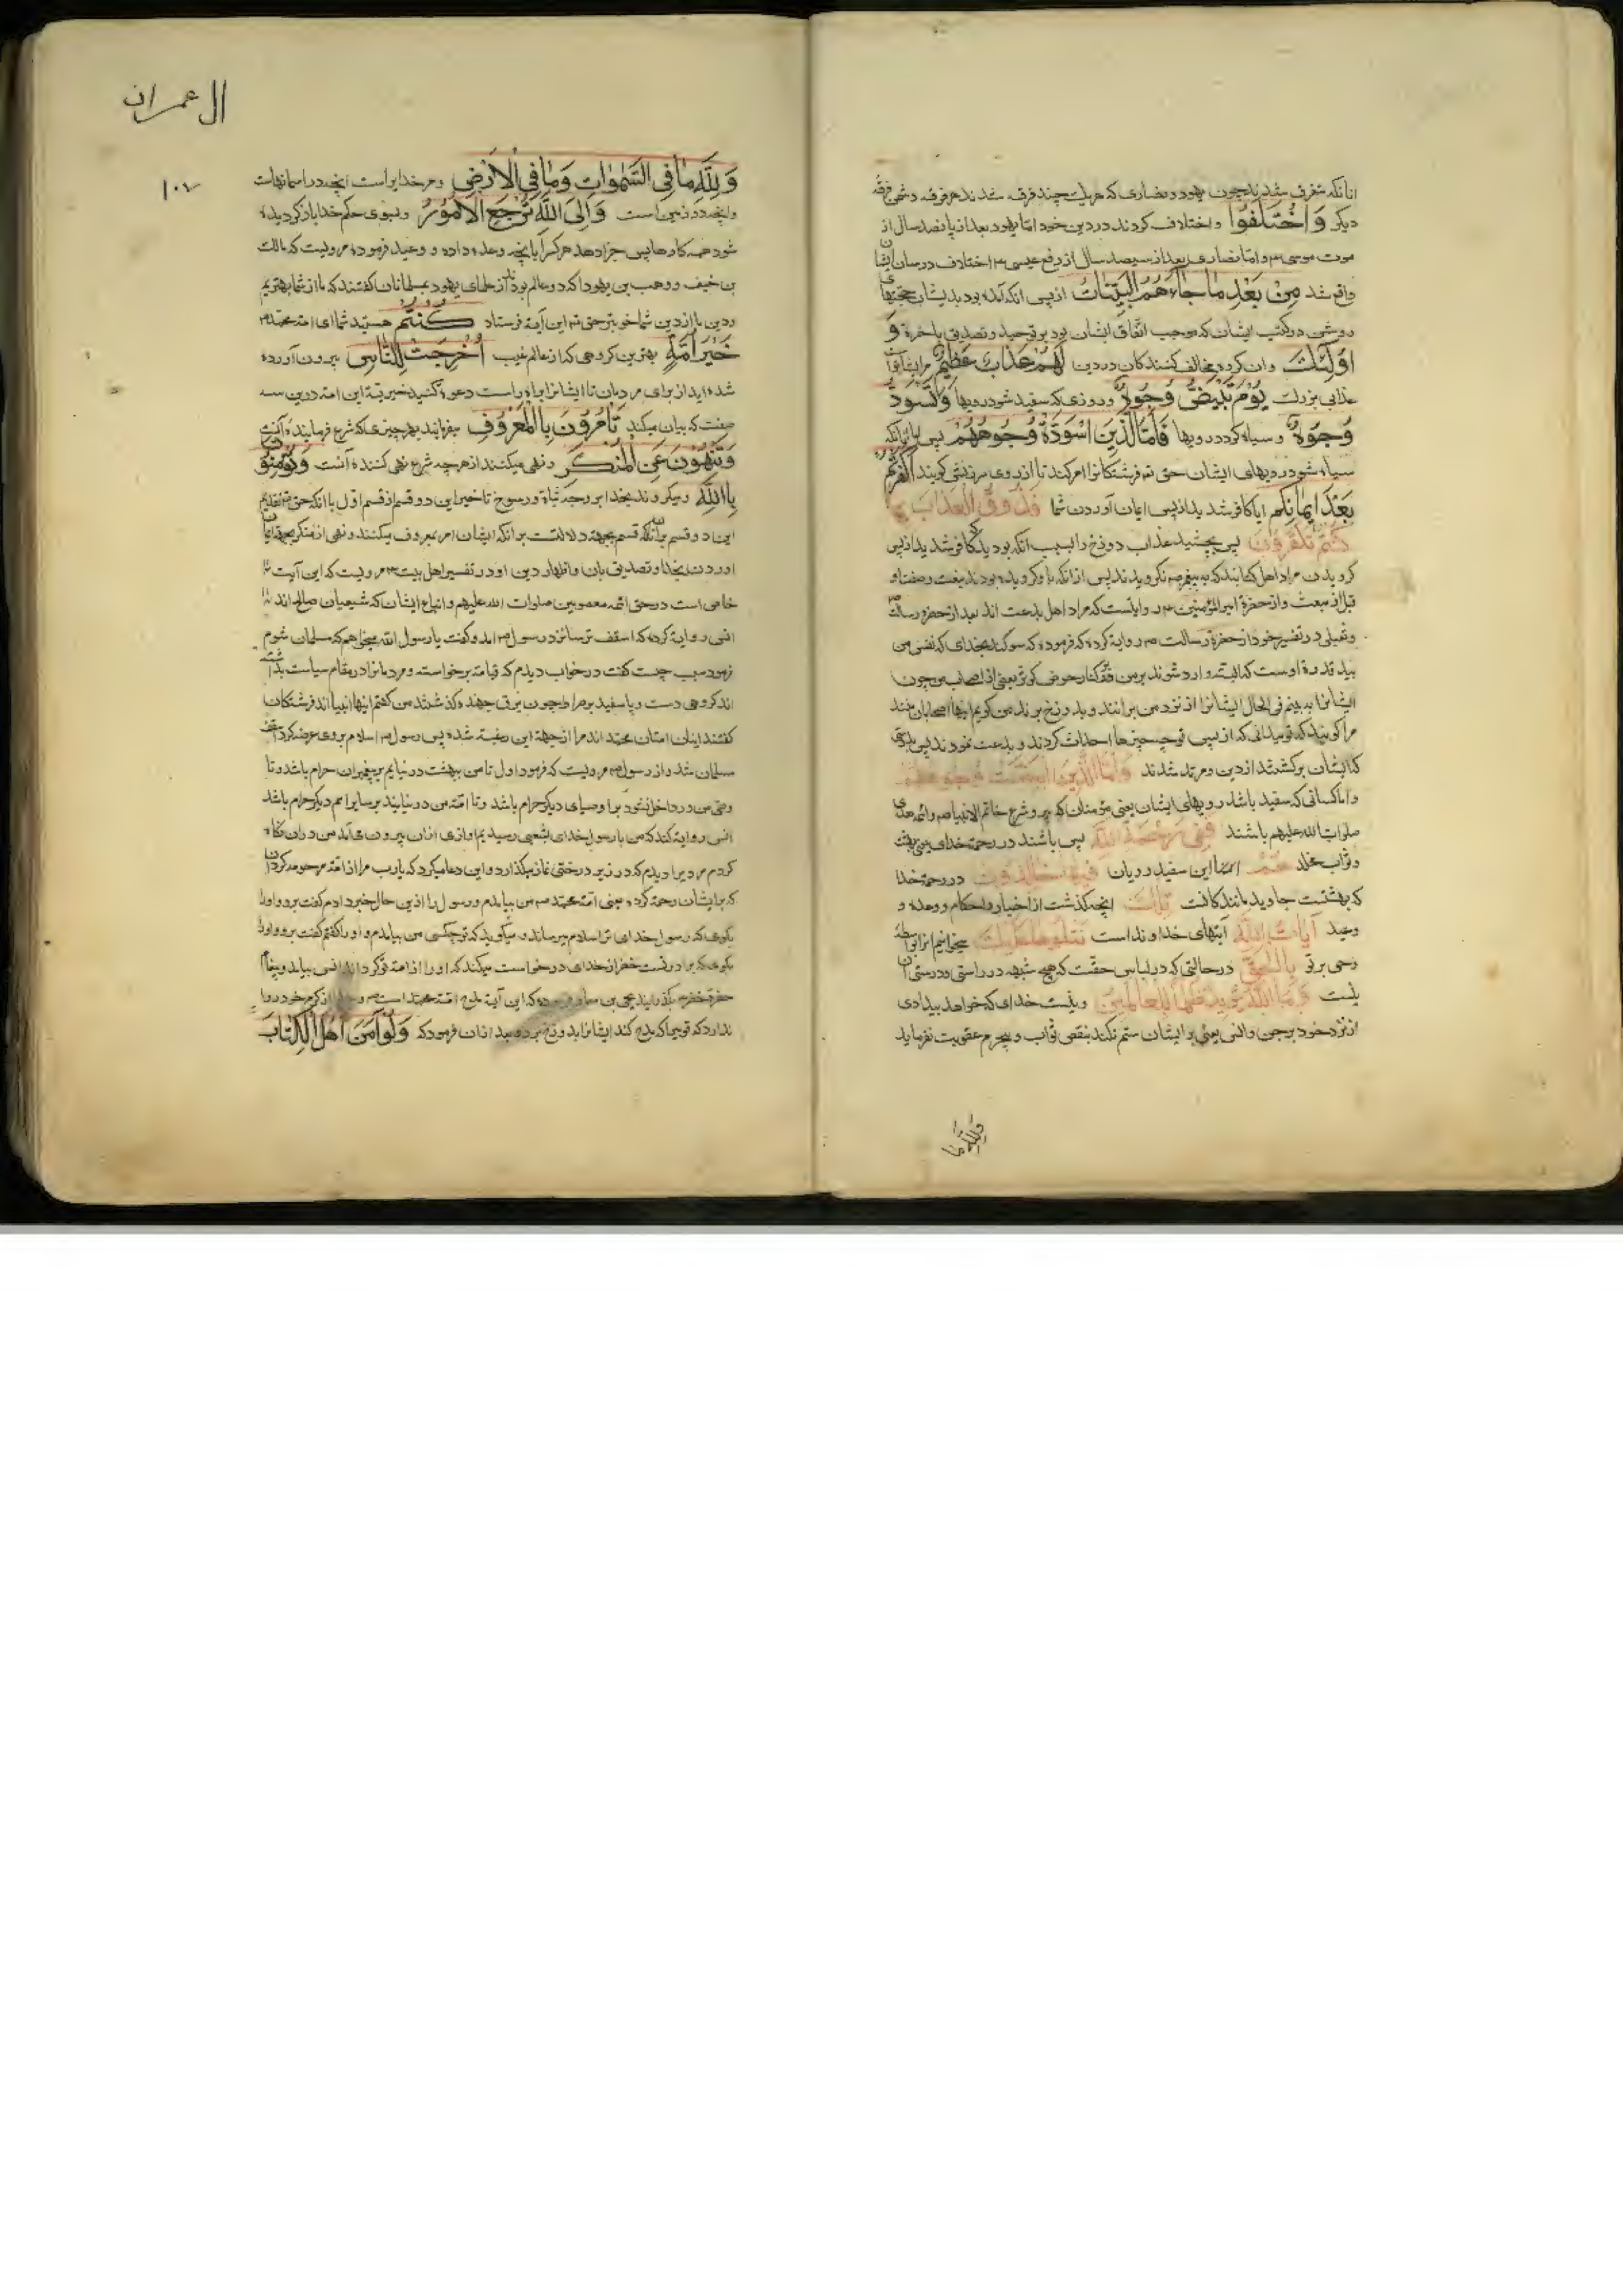 انانکه متفرق شدند چون یهود و نصاری که هریک چند فرقه شدند هر فرقه دشمن فرقه
دیکر وَاخْتَلَفُوا و اختلاف کردند در دین خود اما یهود بعد از پانصد سال از
موت موسی ۴ و اما نصاری بعد از سیصد سال از رفع عیسی ۴ اختلاف در میان ایشان
واقع شد مِنْ بَعْدِ مٰا جٰاءَهُمُ الْبَیِّنٰاتُ از پس انکه آمده بود بدیشان حجتهای
روشن در کتب ایشان که موجب اتفاق ایشان بود بر توحید و تصدیق باخرة وَ
اُولٰئِكَ و ان کروه مخالف کنندکان در دین لَهُمْ عَذٰابٌ عَظیمٌ مر ایشانرا
عذابی بزرك یَوْمَ تَبْیَضُّ وُجُوهٌ در روزی که سفید شود رویها وَتَسْوَدُّ
وُجُوهٌ و سیاه کردد رویها فَاَمَّا الَّذینَ اسْوَدَّةْ وُجُوهُهُمْ پس اما انانکه
سیاه شود رویهای ایشان حق تع فرشتکانرا امر کند تا از روی سرزنش کویند اَکَفَرْتُمْ
بَعْدَ ایمٰانِکُمْ ایا کافر شدید از پس ایمان آوردن شما فَذُوقُوا الْعَذٰابَ بِمٰا
کُنْتُمْ تَکْفُرُونَ پس بچشید عذاب دوزخ را بسبب آنکه بودید که کافر شدید از پس
کرویدن مراد اهل کتابند که به پیغمبر ص نکرویدند پس از انکه باو کرویده بودند بنعت و صفت او
قبل از مبعث و از حضرة امیر المؤمنین ۴ روایتست که مراد اهل بدعت اند بعد از حضرة رسالت ص
و ثعلبی در تفسیر خود از حضرة رسالت ص روایة کرده که فرموده که سوکند بخدای که نفس من
بید قدرة اوست که البته وارد شوند بر من در کنار حوض کوثر بعضی از اصحاب من چون
ایشانرا به بینم فی الحال ایشانرا از نزد من برانند و بدوزخ برند من کویم اینها اصحابان منند
مرا کویند که تو نمیدانی که از پس تو چه چیزها احداث کردند و بدعت نمودند پس بدرستی
که ایشان برکشتند از دین و مرتد شدند وَاَمَّا الَّذینَ ابْیَضَّتْ وُجُوهُهُمْ
و اما کسانی که سفید باشد رویهای ایشان یعنی مؤمنان که پیرو شرع خاتم الانبیا ص و ائمه هدی
صلوات الله علیهم باشند فَفی رَحْمَةِ اللّٰهِ پس باشند در رحمة خدای یعنی بهشت
و ثواب مخلد هُمْ این سفید رویان فیهٰا خٰالِدُونَ در رحمة خدا
که بهشتست جاوید مانندکانت تِلْكَ انچه کذشت از اخبار و احکام و وعده و
وعید آیٰاتُ اللّٰهِ آیتهای خداونداست نَتْلُوهٰا عَلَیْكَ میخوانیم انرا بواسطه
وحی بر تو بِالْحَقِّ در حالتی که در لباس حقست که هیچ شبهه در راستی و درستی آن
نیست وَمَا اللّٰهُ یُریدُ ظُلْمًا لِلْعٰالَمینَ و نیست خدای که خواهد بیدادی
از نزد خود بر جن و انس یعنی بر ایشان ستم نکند بنقص ثواب و بیجرم عقوبت نفرماید
وللّٰه ما
ال عمران
۱۰۷
وَلِلّٰهِ مٰا فِی السَّمٰوٰاتِ وَمٰا فِی الْاَرْضِ و مر خدایراست انچه در اسمانهاست
و انچه در زمین است وَاِلَی اللّٰهِ تُرْجَعُ الْاُمُورُ و بسوی حکم خدا بازکردیده
شود همه کارها پس جزا دهد هر کس را بانچه وعده داده و وعید فرموده مرویست که مالك
بن ضیف و وهب بن یهودا که دو عالم بودند از علمای یهود بمسلمانان کفتند که ما از شما بهتریم
و دین ما از دین شما خوبتر حق تع این آیة فرستاد کُنْتُمْ هستید شما ای امة محمد ص
خَیْرَ اُمَّةٍ بهترین کروهی که از عالم غیب اُخْرِجَتْ لِلنّٰاسِ بیرون آورده
شده اید از برای مردمان تا ایشانرا براه راست دعوة کنید خیریة این امة در این سه
صفت که بیان میکند تَاْمُرُونَ بِاالْمَعْرُوفِ میفرمایند بهر چیزی که شرع فرماینده آنست
وَتَنْهَوْنَ عَنِ الْمُنْکَرِ و نهی میکنند از هرچه شرع نهی کننده آنست وَتُؤْمِنُونَ
بِااللّٰهِ و میکروند بخدا بر وجه ثباة و رسوخ تاخیر این دو قسم از قسم اول با انکه حق تقدیم
این دو قسم بر آنکه قسم بجهة دلالتست بر انکه ایشان امر بمعروف میکنند و نهی از منکر بجهة ایمان
اوردن بخدا و تصدیق بان و اظهار دین او در تفسیر اهل بیت ۴ مرویست که این آیت
خاص است در حق ائمه معصومین صلوات الله علیهم و اتباع ایشان که شیعیان صالح اند
انس روایة کرده که اسقف ترسا نزد رسول ص امد و کفت یا رسول الله میخواهم که مسلمان شوم
فرمود سبب چیست کفت در خواب دیدم که قیامة برخواسته و مردمانرا در مقام سیاست بداشته
اند کروهی دست و پا سفید بر صراط چون برق جهنده کذشتند من کفتم اینها انبیا اند فرشتکان
کفتند اینان امتان محمد اند مرا از جهة این رغبة شده پس رسول ص اسلام بروی عرضه کرد اسقف
مسلمان شد و از رسول ص مرویست که فرمود اول تا من ببهشت در نیایم بر پیغمبران حرام باشد و تا
وصی من در داخل نشود بر اوصیای دیکر حرام باشد و تا امة من در نیایند بر سایر امم دیکر حرام باشد
انس روایة کند که من با رسول خدای بشعبی رسیدیم اوازی ازان بیرون می آمد من دران نکاه
کردم مردیرا دیدم که در زیر درختی نماز میکذارد و این دعا میکرد که یا رب مرا از امة مرحومه کردان
که بر ایشان رحمة کرده یعنی امة محمد ص من بیامدم و رسول را ازین حال خبر دادم کفت برو و اورا
بکوی که رسول خدای ترا سلام میرساند و میکوید که تو چکسی من بیامدم و اورا کفتم کفت برو و اورا
بکوی که برادرتست خضر از خدای درخواست میکند که اورا از امة تو کرداند انس بیامد و پیغام
ندارد که تو بیجا که مدح کند ایشانرا بدوزخ برد و بعد ازان فرمود که وَلَوْ اٰمَنَ اَهْلُ الْکِتٰابِ